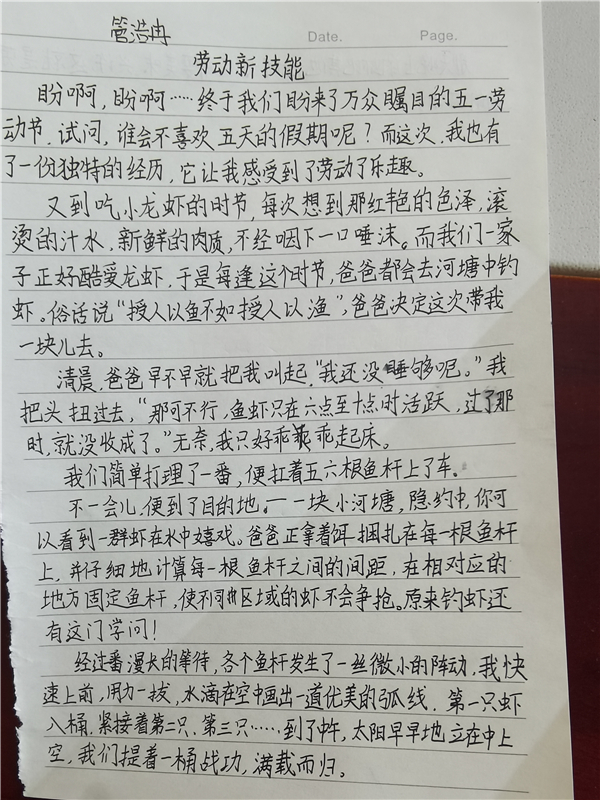 管浩冉
Date.    Page.
劳动新技能
盼啊，盼啊……终于我们盼来了万众瞩目的五一劳
动节，试问，谁会不喜欢五天的假期呢？而这次，我也有
了一份独特的经历，它让我感受到了劳动了乐趣。
又到吃小龙虾的时节，每次想到那红艳的色泽，滚
烫的汁水，新鲜的肉质，不经咽下一口唾沫。而我们一家
子正好酷爱龙虾，于是每逢这个时节，爸爸都会去河塘中钓
虾。俗话说“授人以鱼不如授人以渔”，爸爸决定这次带我
一块儿去。
清晨，爸爸早不早就把我叫起，“我还没睡够呢。”我
把头扭过去，“那可不行，鱼虾只在六点至十点时活跃，过了那
时，就没收成了。”无奈，我只好乖乖起床。
我们简单打理了一番，便扛着五六根鱼杆上了车。
不一会儿，便到了目的地。——一块小河塘，隐约中，你可
以看到一群虾在水中嬉戏。爸爸正拿着饵一捆扎在每一根鱼杆
上，并仔细地计算每一根鱼杆之间的间距，在相对应的
地方固定鱼杆，使不同区域的虾不会争抢。原来钓虾还
有这门学问！
经过番漫长的等待，各个鱼杆发生了一丝微小的阵动，我快
速上前，用力一拔，水滴在空中画出一道优美的弧线，第一只虾
入桶，紧接着第二只、第三只……到了中午，太阳早早地立在中上
空，我们提着一桶战功，满载而归。